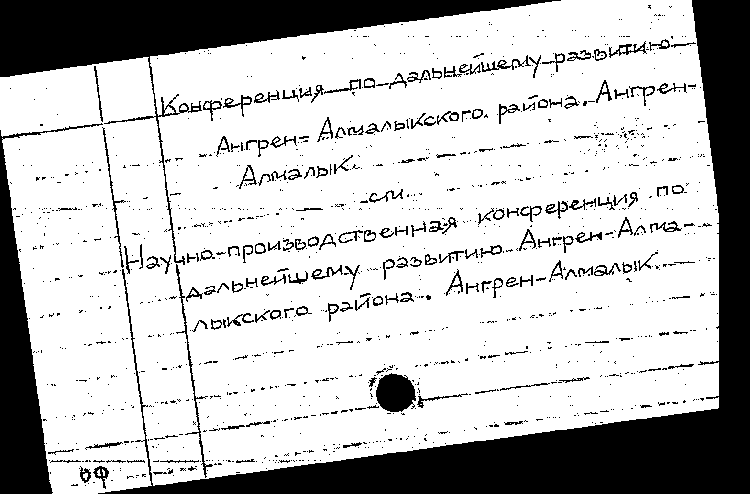 Конференция по дальнейшему развитию
Ангрен-Алмалыкского района. Ангрен-
Алмалык.
см.
Научно-производственная конференция по
дальнейшему развитию Ангрен-Алма-
лыкского района. Ангрен-Алмалык.